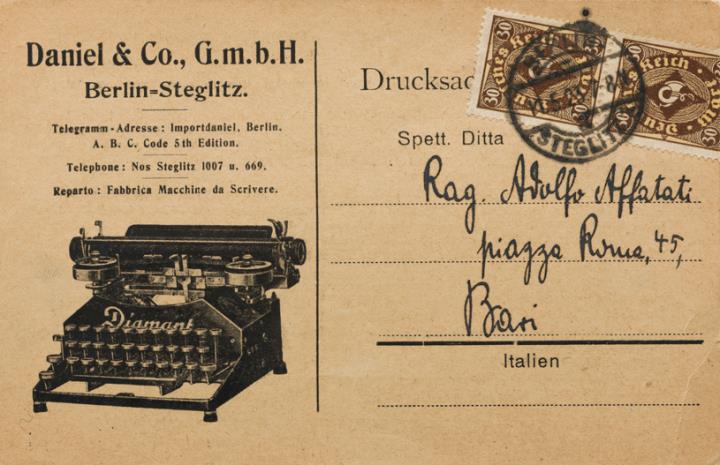 Daniel & Co., G.m.b.H.
Berlin=Steglitz.
Telegramm-Adresse: Importdaniel, Berlin.
A. B. C. Code 5th Edition.
Telephone: Nos Steglitz 1007 u. 669.
Reparto: Fabbrica Macchine da Scrivere.
Diamant
Drucksac
30
30
30
30
Reich
STEGLITZ
Spett. Ditta
Rag. Adolfo Affatati
piazza Roma, 45,
Bari
Italien